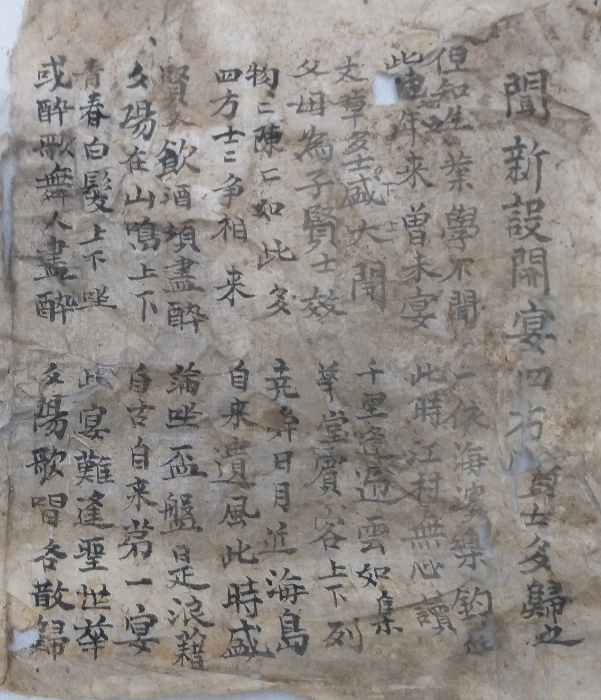 聞新設開宴四方賢士多歸也
但知生業學不聞 一依海濱樂釣
此電年來曾未宴 此時江村無心讀
文章多士盛大開 千里遠近雲如集
父母為子賢士效 華堂賓客上下列
物二陳二如此多 堯舜日月近海島
四方士二爭相來 自來遺風此時盛
賢人飲酒須盡醉 滿坐盃盤是浪藉
夕陽在山鳴上下 自古自來第一宴
青春白髮上下坐 此宴難逢聖世華
或醉歌舞人盡醉 夕陽歌唱各散歸